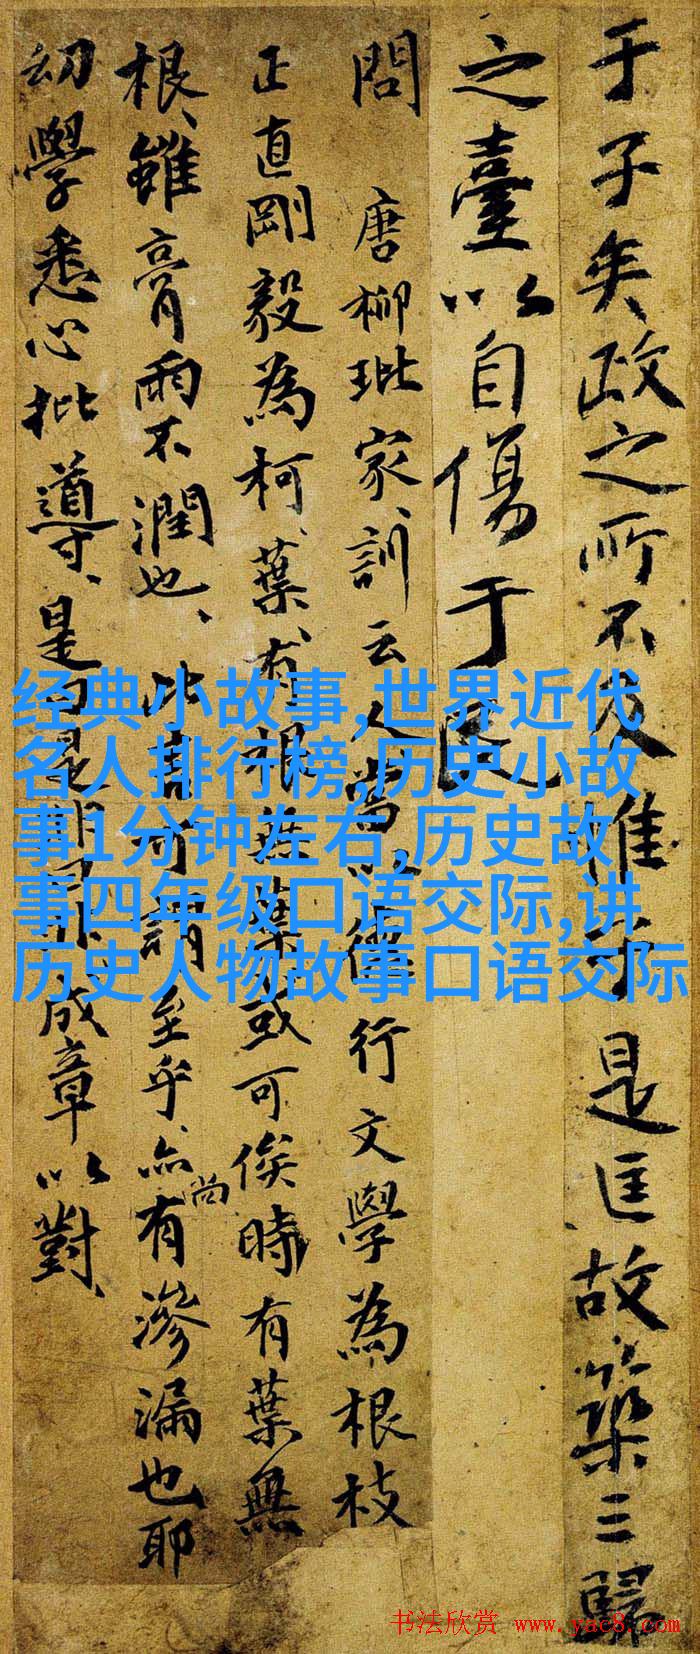 于子矣政之所不及惟是匡故築三歸
之臺以自傷于民
問 唐柳玭家訓云人當以德行文學為根枝
正直剛毅為柯、葉、有根無葉或可俟時有葉無
根、雖膏雨不潤也、此言可謂至乎、亦尚有滲漏也耶
幼學悉心批導、是曰是非成章以對、
经典小故事,世界近代
名人排行榜,历史小故
事1分钟左右,历史故
事四年级口语交际,讲
历史人物故事口语交际
书法欣赏 www.yac8.com